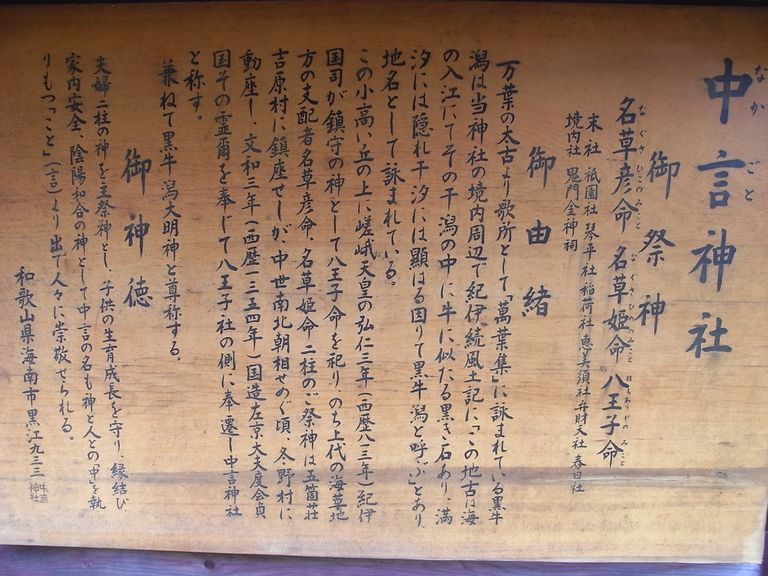 中言神社
なか ごと
御祭神
名草彦命 名草姫命 八王子命
なぐさひこのみこと なぐさひめのみこと はちおうじのみこと
末社 祇園社 琴平社 稲荷社 恵美須社 弁財天社 春日社
境内社 鬼門金神祠
御由緒
万葉の太古より歌所として「萬葉集」に詠まれている黒牛
潟は当神社の境内周辺で紀伊続風土記に「この地古は海
の入江にてその干潟の中に牛に似たる黒き石あり、満
汐には隠れ干汐には顕はる因りて黒牛潟と呼ぶ」とあり、
地名として詠まれている。
この小高い丘の上に嵯峨天皇の弘仁三年(西歴八一三年)紀伊
国司が鎮守の神として八王子命を祀り、のち上代の海草地
方の支配者名草彦命、名草姫命二柱のご祭神は五箇荘
吉原村に鎮座せしが、中世南北朝相せめぐ頃、冬野村に
動座し、文和三年(西歴一三五四年)国造左京大夫度会貞
国その霊爾を奉じて八王子社の側に奉遷し中言神社
と称す。
兼ねて黒牛潟大明神と尊称する。
御神徳
夫婦二柱の神を主祭神とし、子供の生育成長を守り、縁結び
家内安全、陰陽和合の神として中言の名も神と人との中を執
りもつ「こと」(言)より出で人々に崇敬せられる。
和歌山県海南市黒江九三三